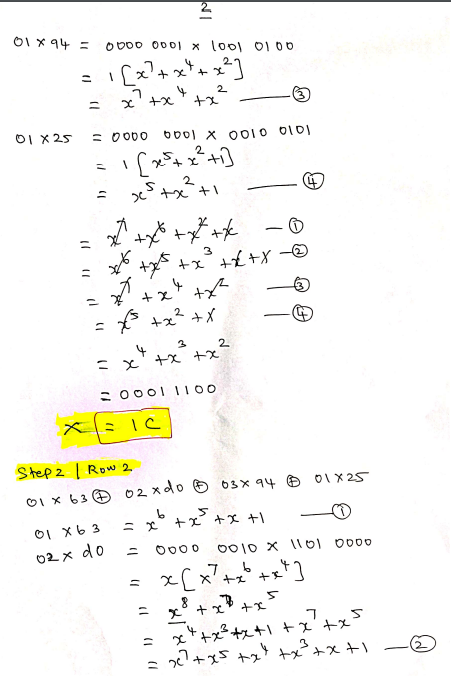 2
01 x 94 = 0000 0001 x 1001 0100
= 1 [x⁷ + x⁴ + x²]
= x⁷ + x⁴ + x² —— ③
01 x 25 = 0000 0001 x 0010 0101
= 1 [x⁵ + x² + 1]
= x⁵ + x² + 1 —— ④
= x⁷ + x⁶ + x² + x — ①
= x⁶ + x⁵ + x³ + x + 1 — ②
= x⁷ + x⁴ + x² —— ③
= x⁵ + x² + 1 —— ④
= x⁴ + x³ + x²
= 00011100
x = 1C
Step 2 | Row 2
01 x 63 ⊕ 02 x d0 ⊕ 03 x 94 ⊕ 01 x 25
01 x 63 = x⁶ + x⁵ + x + 1 —— ①
02 x d0 = 0000 0010 x 1101 0000
= x [x⁷ + x⁶ + x⁴]
= x⁸ + x⁷ + x⁵
= x⁴ + x³ + x + 1 + x⁷ + x⁵
= x⁷ + x⁵ + x⁴ + x³ + x + 1 — ②